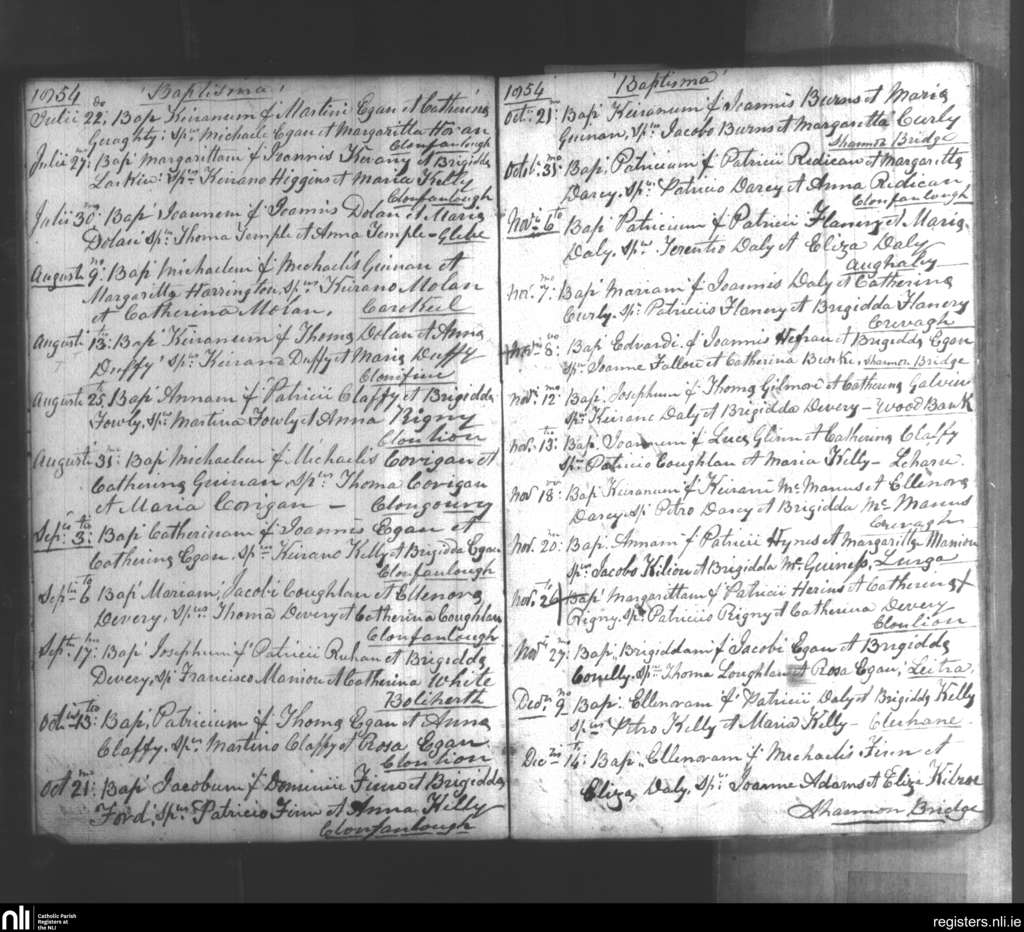 1854 Baptisma
Julii 22: Bap Keiranum f Martini Egan et Catherina
Geraghty: Sp: Michaele Egan et Margaritta Horan
Clonfanlough
Julii 27: Bap Margarittam f Joannis Kirany et Brigidda
Larkin: Sp Keirano Higgins et Maria Kelly
Clonfanlough
Julii 30: Bap Joannem f Joannis Dolan et Maria
Dolan Sp: Thoma Temple et Anna Temple - Glebe
August 9: Bap Michaelem f Michaelis Guinan et
Margaritta Harrington, Sp Keirano Molan
et Catherina Molan.
August 13: Bap Keiranum f Thoma Dolan et Anna
Duffy Sp: Keirano Duffy et Maria Duffy
August 25 Bap Annam f Patricii Claffy et Brigidda
Fowly, Sp: Martino Fowly et Anna Rigny
Clonlion
August 31: Bap Michaelem f Michaelis Corrigan et
Catherina Guinan, Sp Thoma Corigan
et Maria Corigan -
Sep: 3: Bap Catherinam f Joannis Egan et
Catherina Egan, Sp Keirano Kelly et Brigidda Egan
Clonfanlough
Sep 6 Bap Mariam, Jacobi Coughlan et Ellenora
Devery, Sp Thoma Devery et Catherina Coughlan
Clonfanlough
Sept 17: Bap Josephum f Patricii Ruhan et Brigidda
Devery, Sp Francisco Manion et Catherina White
Oct 13: Bap, Patricium f Thoma Egan et Anna
Claffy. Sp: Martino Claffy et Rosa Egan
Clonlion
Oct 21: Bap Jacobum f Dominici Finn et Brigidda
Ford, Sp Patricio Finn et Anna Kelly
Clonfanlough
1854 Baptisma
Oct. 21: Bap Keiranum f Joannis Burns et Maria
Guinan, Sp Jacobo Burns et Margaretta Curly
Shannon Bridge
Octob: 31: Bap, Patricium f Patricii Redican et Margaritta
Darcy, Sp Patricio Darcy et Anna Redican
Clonfanlough
Nov 6 Bap Patricium f Patricii Flanery et Maria
Daly. Sp Terentio Daly et Eliza Daly
Aughaly
Nov. 7: Bap Mariam f Joannis Daly et Catherina
Curly. Sp: Patricio Flanery et Brigidda Flanery
Crevagh
Nov 8: Bap Edvardi f Joannis Hefran et Brigidda Egan
Sp Joanne Fallon et Catherina Burke, Shannon Bridge
Nov: 12 Bap, Josephum f Thoma Gilmor et Catherina Galvin
Sp Keirano Daly et Brigidda Devery - Wood Bank
Nov. 13: Bap Joannem f Luca Glinn et Catherina Claffy
Sp Patricio Coughlan et Maria Kelly -
Nov 18: Bap Keiranum f Keirani Mc Manus et Ellenora
Darcy, Sp Petro Darcy et Brigidda Mc Manus
Crevagh
Nov. 20: Bap Annam f Patricii Hynes et Margaritta Manion
Sp: Jacobo Kilion et Brigidda Mc Guiness, Lurga
Nov. 26 Bap Margarittam f Patricii Heins et Catherina
Rigny. Sp: Patricio Rigny et Catherina Devery
Clonlion
Nov 27: Bap.. Brigiddam f Jacobi Egan et Brigidda
Conelly, Sp: Thoma Loughlan et Rosa Egan, Leitra
Dec 9 Bap: Ellenoram f Patricii Daly et Brigidda Kelly
Sp Petro Kelly et Maria Kelly - Clerhane
Dec 14: Bap.. Ellenoram f Michaelis Finn et
Eliza Daly, Sp: Joanne Adams et Eliza Kilroe
Shannon Bridge
nli
Catholic Parish
Registers at
the NLI
registers.nli.ie